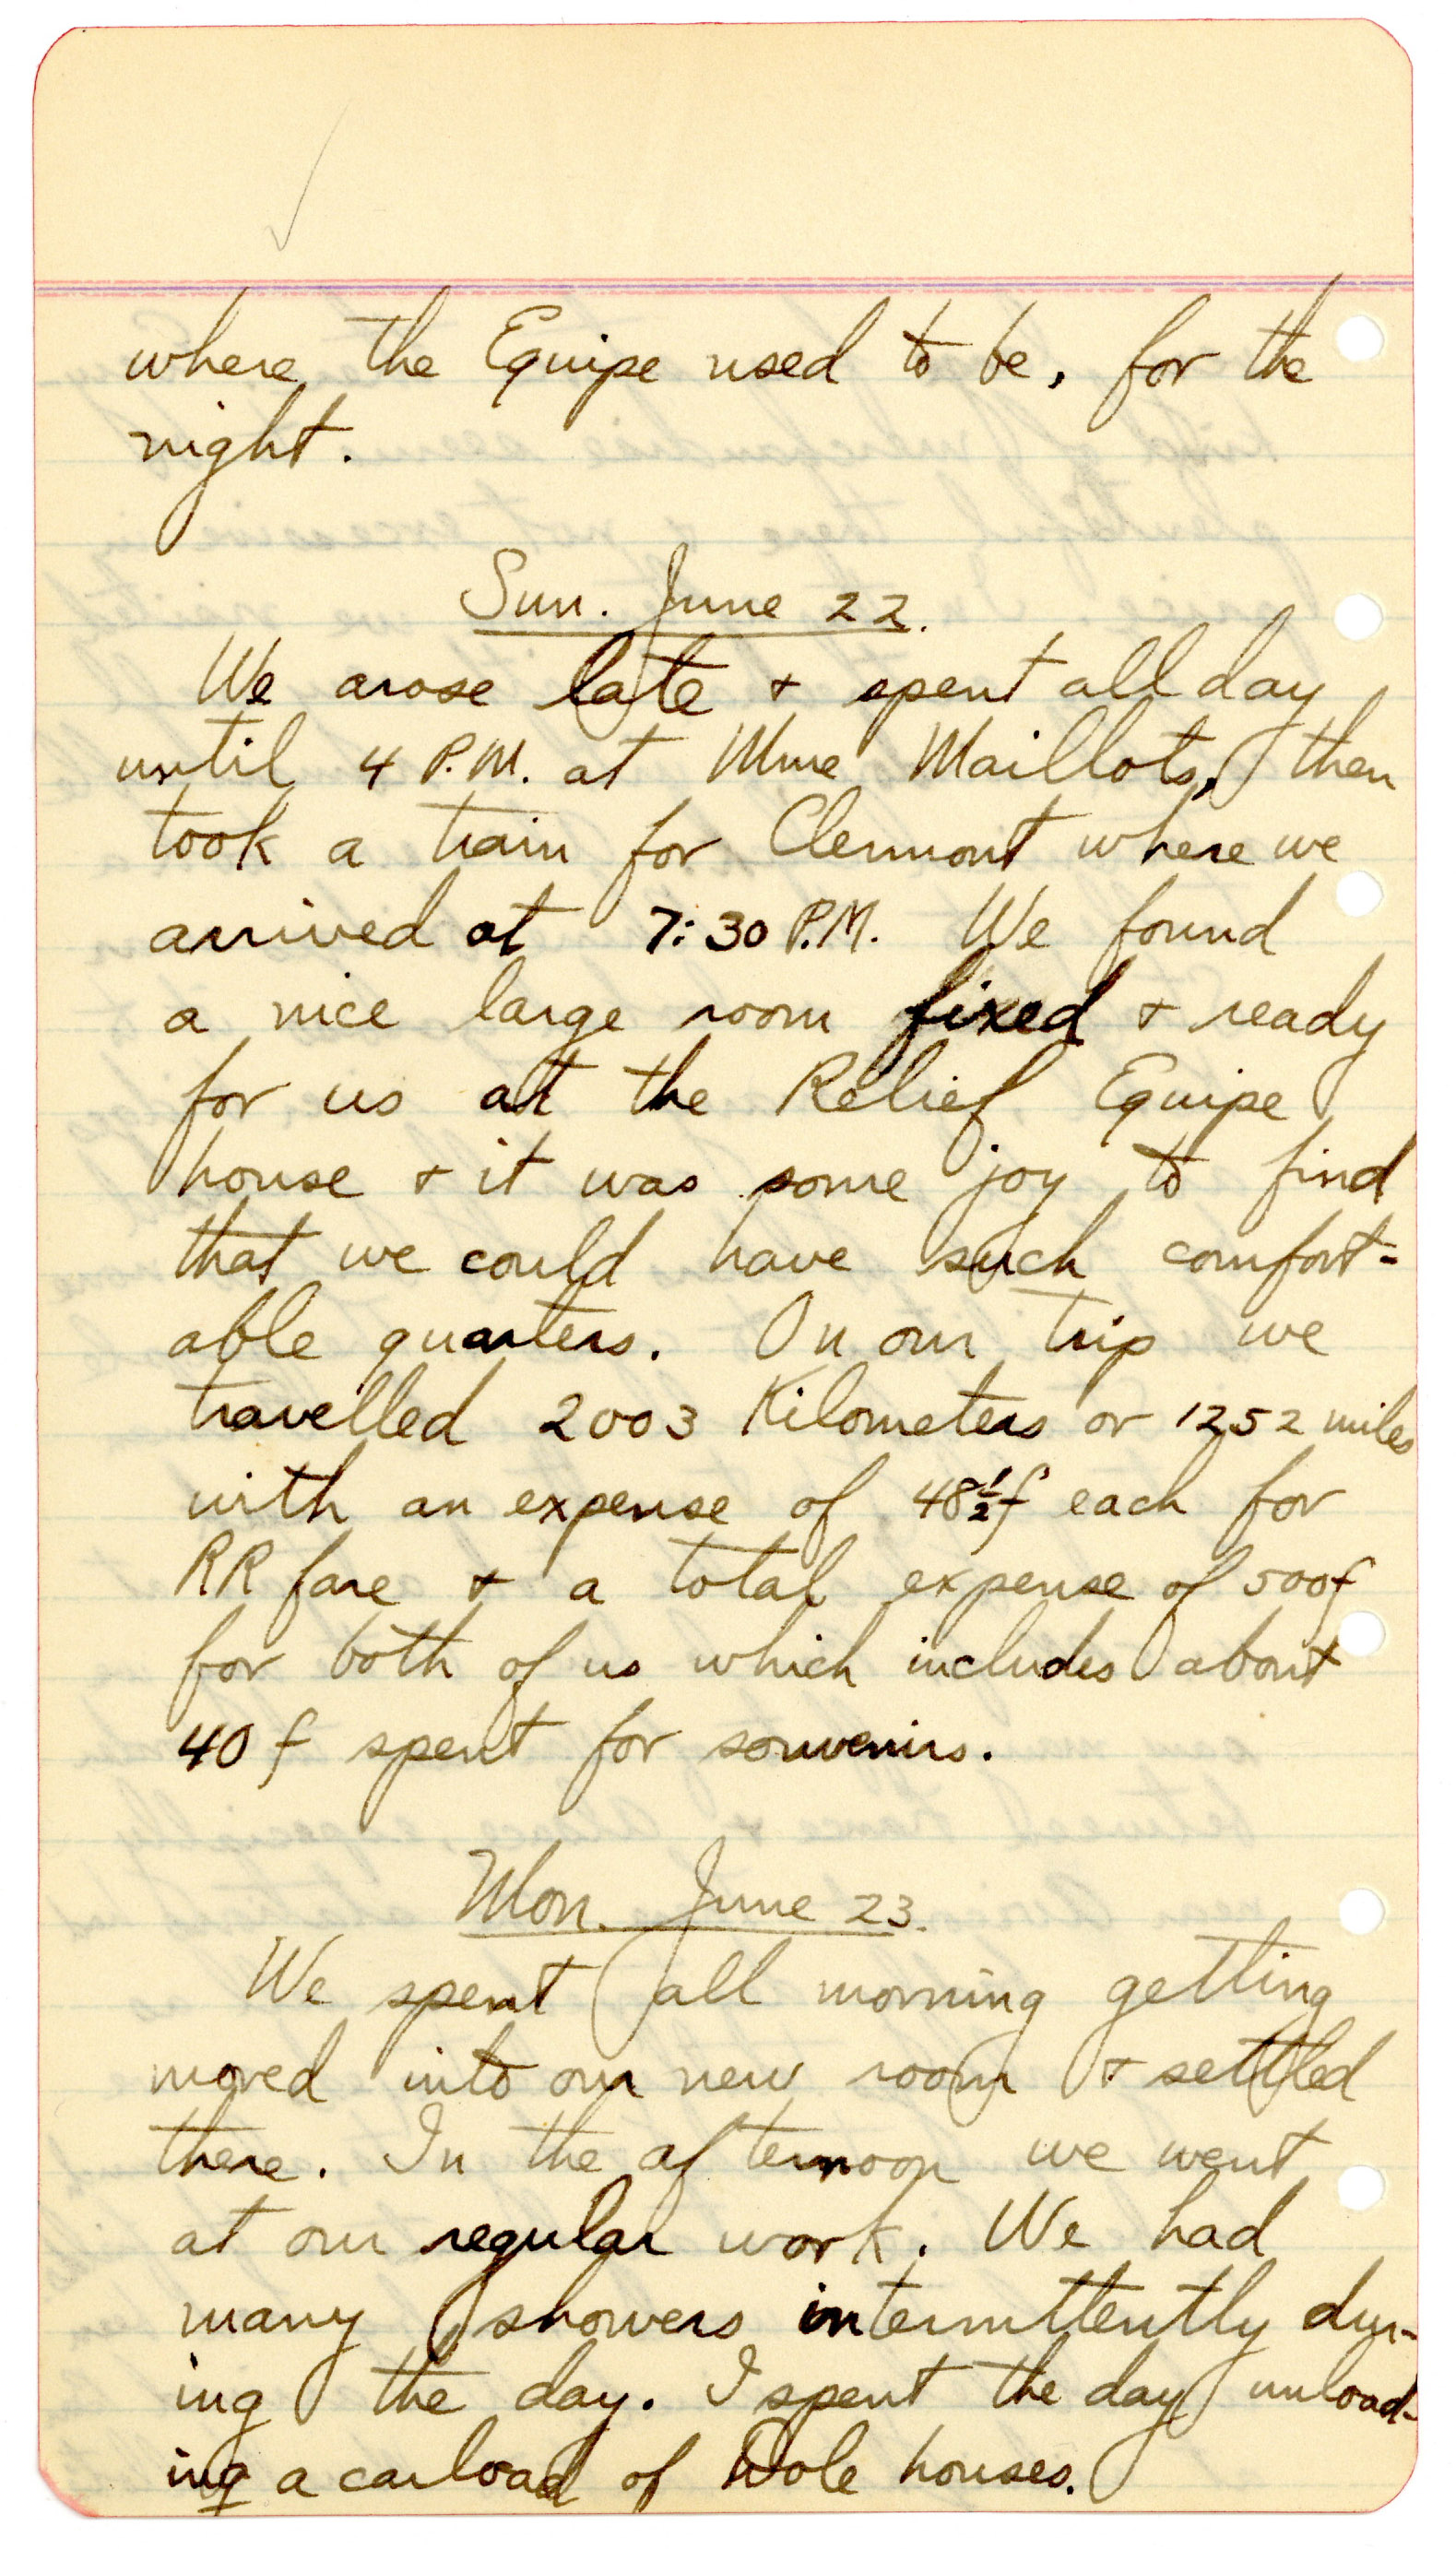 where the Equipe used to be, for the
night.
Sun. June 22.
We arose late + spent all day
until 4 P.M. at Mme Maillots, then
took a train for Clermont where we
arrived at 7:30 P.M. We found
a nice large room fixed + ready
for us at the Relief Equipe
house + it was some joy to find
that we could have such comfort-
able quarters. On our trip we
travelled 2003 Kilometers or 1252 miles
with an expense of 48½f each for
RR fare + a total expense of 500f
for both of us which includes about
40 f spent for souvenirs.
Mon. June 23.
We spent all morning getting
moved into our new room + settled
there. In the afternoon we went
at our regular work. We had
many showers intermittently dur-
ing the day. I spent the day unload-
ing a carload of Dole houses.